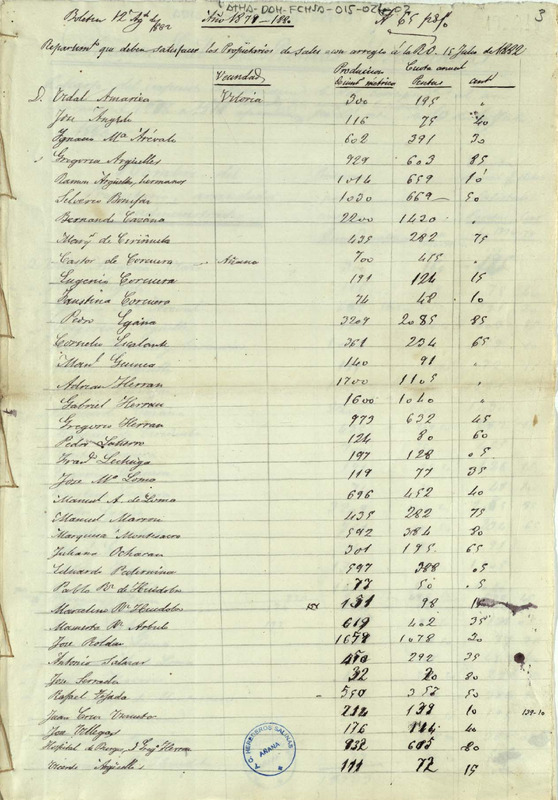 ATHA-DAH-FCHSA-015-02
3
Boletin 12 Agto de 1882
Año 1879-1880
A 65 ps/o
Repartimto que deben satisfacer los Propietarios de Sales con arreglo á la R.O. 15 Julio de 1882
Vecindad Producion Quint métrico Cuota anual Pesetas cent
D. Vidal Amarica Vitoria 300 195 "
Jose Angulo 116 75 40
Ignacio Ma Arévalo 602 391 30
Gregorio Argüelles 929 603 85
Ramon Argüelles, hermanos 1014 659 10
Silverio Bonifaz 1030 669 50
Bernardo 2200 1430 "
Marqs de Ciriñuela 435 282 75
Castor de Corcuera Añana 700 455 "
Eugenio Corcuera 191 124 15
Faustina Corcuera 74 48 10
Pedro Egaña 3209 2085 85
Cornelio Escalante 361 234 65
Manl Guinea 140 91 "
Adrian Herran 1700 1105 "
Gabriel Herran 1600 1040 "
Gregorio Herran 973 632 45
Pedro 124 80 60
Frando 197 128 05
Jose Ma Loma 119 77 35
Manuel A. de Loma 696 452 40
Manuel Marron 435 282 75
Marquesa Montesacro 592 384 80
Juliana Ocharan 301 195 65
Eduardo Pedernina 597 388 05
Pablo Bn de Huidobro 77 50 05
Marcelino Rz Huidobro 151 151 98 15
Mamerto Rz 619 402 35
Jose Roldan 1659 1078 20
Antonio Salazar 450 292 35
Jose Serrada 32 20 80
Rafael Tejada 550 357 50
Juan Cruz 214 139 10 139-10
Jose Villegas 176 114 40
Hospital de Burgos, Herran 932 605 80
Vicente Argüelles 111 72 15
A.C. HEREDEROS SALINAS
AÑANA